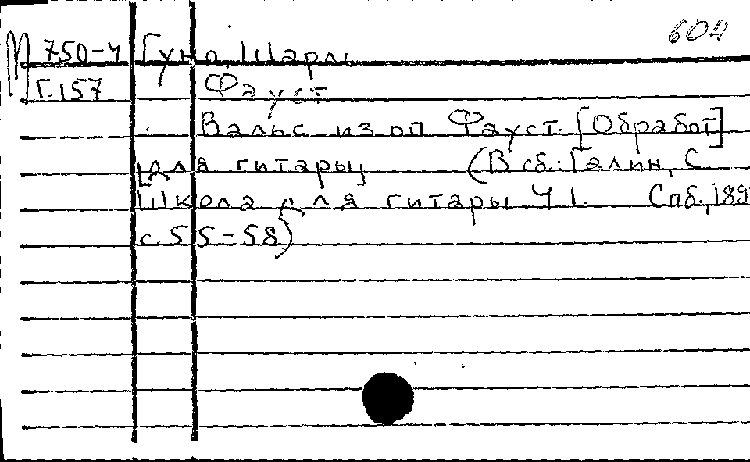 604
М 750-4 Гуно, Шарль
Г.157 Фауст
Вальс из оп Фауст. [Обработ]
[для гитары] (В сб.: Галин, С
Школа для гитары Ч 1. Спб., 189
с. 55-58)